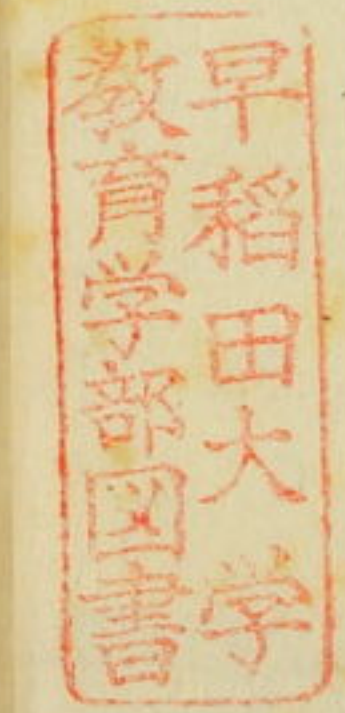 早稲田大学
教育学部図書